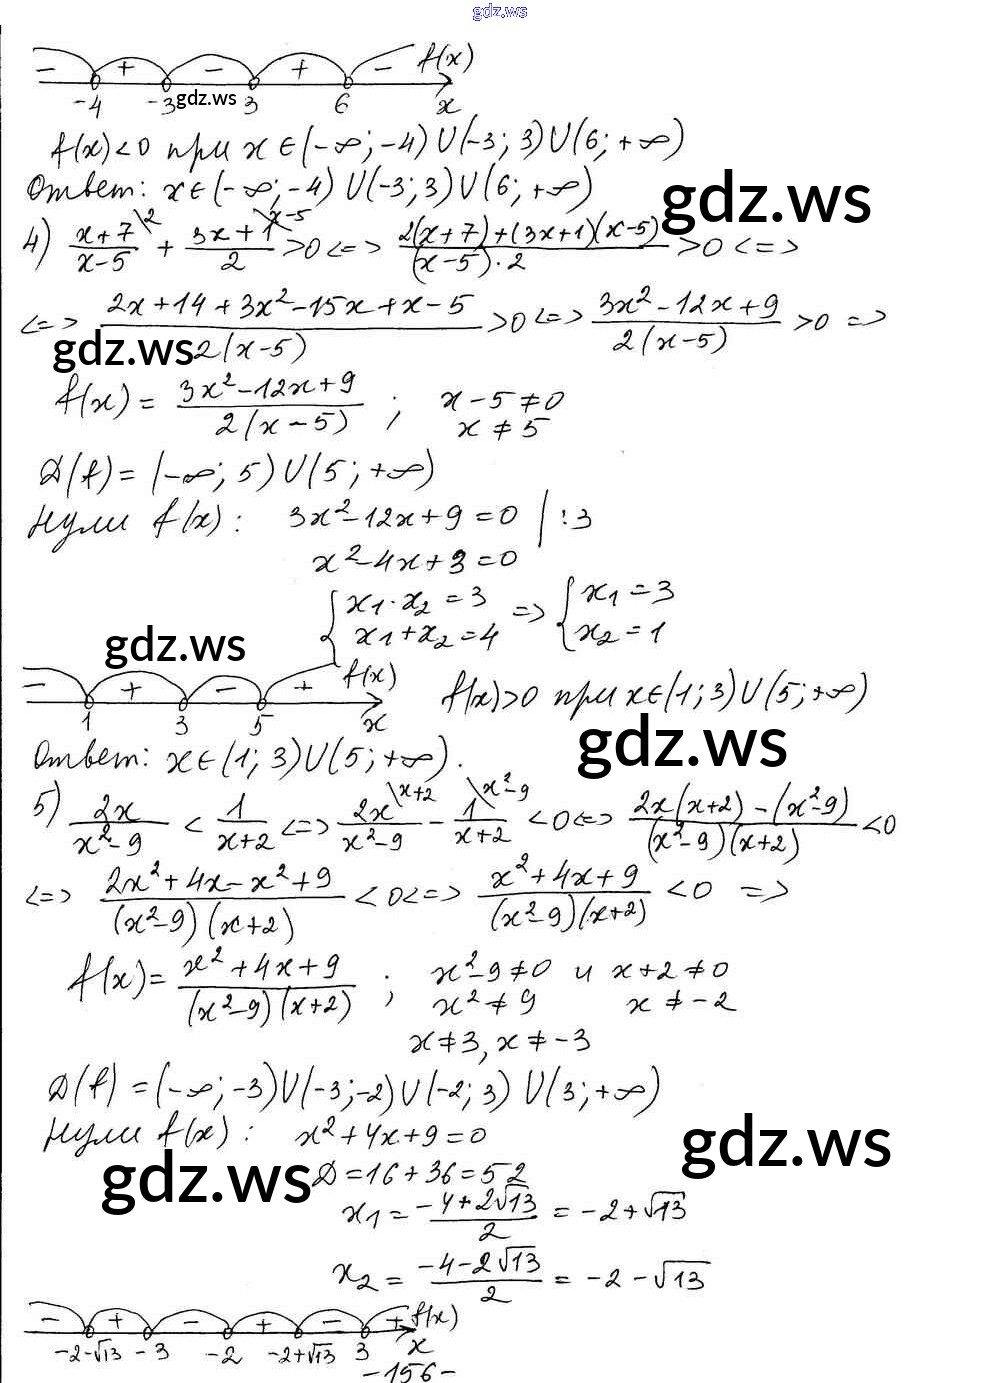 gdz.ws
− + − + − f(x)
-4 -3 gdz.ws 3 6 x
f(x)<0 при x∈(-∞;-4)∪(-3;3)∪(6;+∞)
Ответ: x∈(-∞;-4)∪(-3;3)∪(6;+∞)
gdz.ws
4) (x+7)/(x-5) \2 + (3x+1)/2 \x-5 >0 <=> (2(x+7)+(3x+1)(x-5))/((x-5)·2) >0 <=>
<=> (2x+14+3x²-15x+x-5)/(2(x-5)) >0 <=> (3x²-12x+9)/(2(x-5)) >0 =>
gdz.ws
f(x) = (3x²-12x+9)/(2(x-5)) ; x-5≠0
x≠5
D(f)=(-∞;5)∪(5;+∞)
Нули f(x): 3x²-12x+9=0 |:3
x²-4x+3=0
{x₁·x₂=3 => {x₁=3
{x₁+x₂=4 {x₂=1
gdz.ws
− + − + f(x) f(x)>0 при x∈(1;3)∪(5;+∞)
1 3 5 x
gdz.ws
Ответ: x∈(1;3)∪(5;+∞).
5) 2x/(x²-9) < 1/(x+2) <=> 2x/(x²-9) \x+2 - 1/(x+2) \x²-9 <0 <=> (2x(x+2)-(x²-9))/((x²-9)(x+2)) <0
<=> (2x²+4x-x²+9)/((x²-9)(x+2)) <0 <=> (x²+4x+9)/((x²-9)(x+2)) <0 =>
f(x)= (x²+4x+9)/((x²-9)(x+2)) ; x²-9≠0 и x+2≠0
x²≠9 x≠-2
x≠3, x≠-3
D(f)=(-∞;-3)∪(-3;-2)∪(-2;3)∪(3;+∞)
Нули f(x): x²+4x+9=0
gdz.ws
gdz.ws D=16+36=52
x₁= (-4+2√13)/2 = -2+√13
x₂= (-4-2√13)/2 = -2-√13
− + − + − + f(x)
-2-√13 -3 -2 -2+√13 3 x
-156-